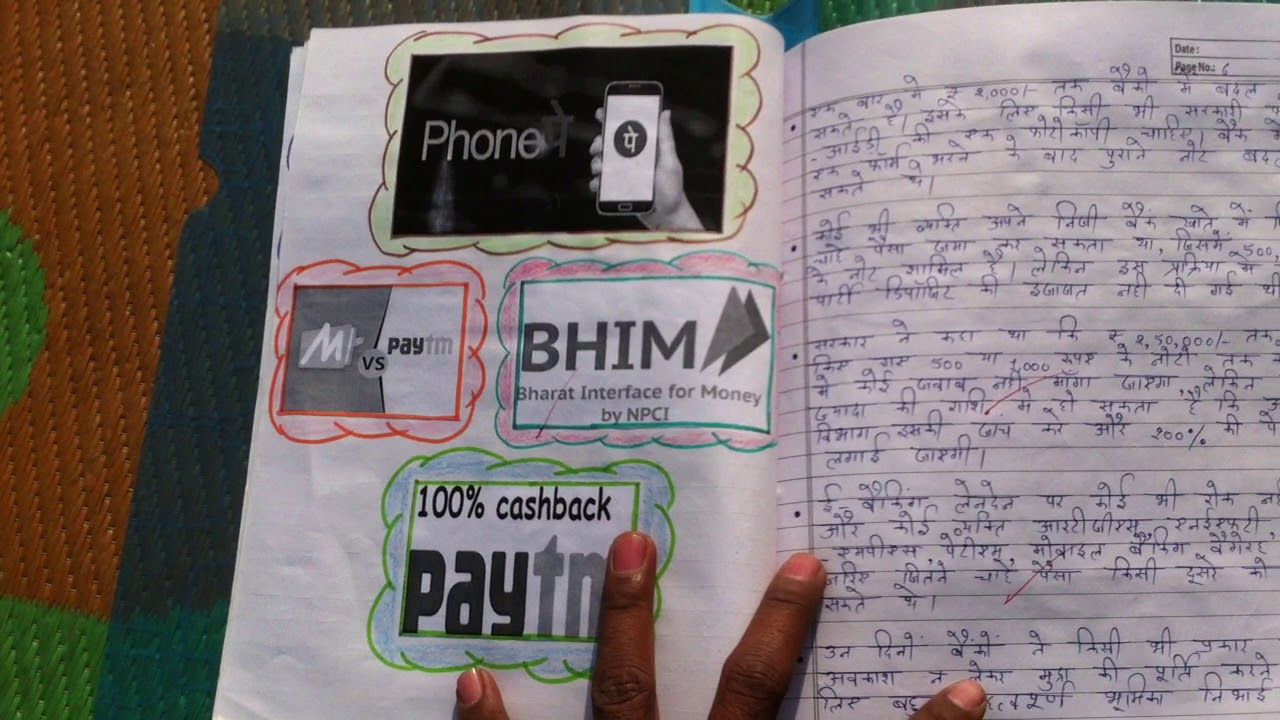 Phoneपे
पे
M vs paytm
BHIM
Bharat Interface for Money
by NPCI
100% cashback
paytm
Date:
Page No.: 6
एक बार में ₹ २,000/- तक बैंकों में बदल
सकते हैं। इसके लिए किसी भी सरकारी
आईडी की एक फोटोकॉपी चाहिए। बैंक
एक फॉर्म भरने के बाद पुराने नोट बदल
सकते थे।
कोई भी व्यक्ति अपने निजी बैंक खाते में
चाहे पैसा जमा कर सकता था, जिसमें 500,
के नोट शामिल हैं। लेकिन इस प्रक्रिया में
पार्टी डिपॉजिट की इजाजत नहीं की गई थी
सरकार ने कहा था कि ₹ २,50,000/- तक
किए गए 500 या 1,000 रूपए के नोटों तक
में कोई जवाब नहीं माँगा जाएगा, लेकिन
ज्यादा की राशि में हो सकता है कि
विभाग इसकी जाँच करे और २००% की
लगाई जाएगी।
ई बैंकिंग लेनदेन पर कोई भी रोक
और कोई व्यक्ति आरटीजीएस, एनईएफटी,
एमपीएस, पेटीएम, मोबाइल बैंकिंग वगैरह
जरिए जितने चाहे पैसा किसी दूसरे को
सकते थे।
उन दिनों बैंकों ने किसी भी प्रकार
अवकाश न लेकर मुद्रा की पूर्ति करने
लिए भूमिका निभाई